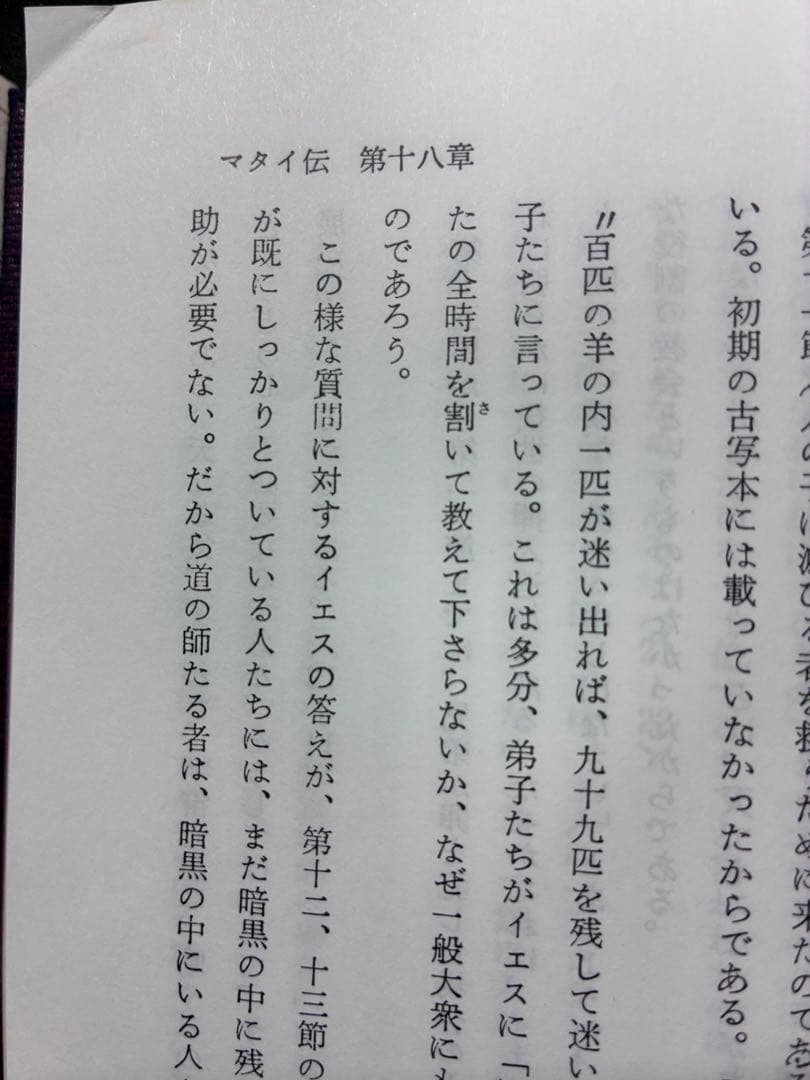 マタイ伝　第十八章
第十一節〝人の子は滅びる者を救うために来たのである
いる。初期の古写本には載っていなかったからである。
〝百匹の羊の内一匹が迷い出れば、九十九匹を残して迷い
子たちに言っている。これは多分、弟子たちがイエスに「
たの全時間を割いて教えて下さらないか、なぜ一般大衆にも
のであろう。
この様な質問に対するイエスの答えが、第十二、十三節の
が既にしっかりとついている人たちには、まだ暗黒の中に残
助が必要でない。だから道の師たる者は、暗黒の中にいる人